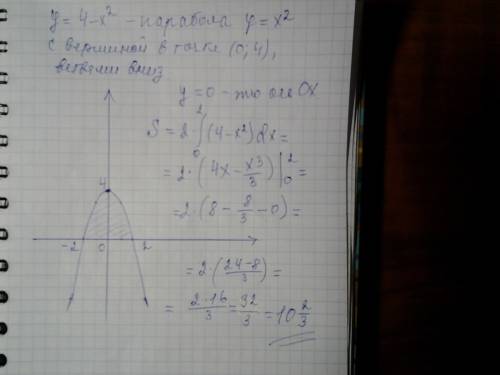 y = 4 - x² - парабола y = x²
с вершиной в точке (0; 4),
ветвями вниз
y = 0 - это ось OX
S = 2 · ∫₀² (4 - x²) dx =
= 2 · (4x - x³/3) |₀² =
= 2 · (8 - 8/3 - 0) =
= 2 · (24 - 8 / 3) =
= 2 · 16 / 3 = 32/3 = 10 2/3
4
-2 0 2